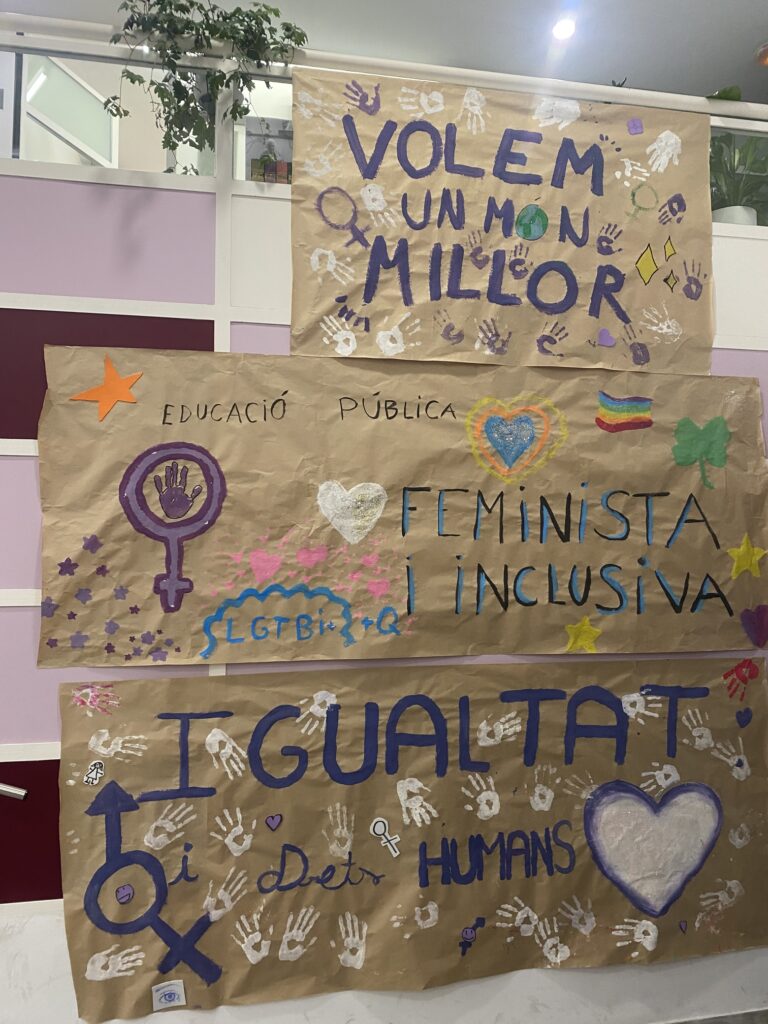 VOLEM
UN MON
MILLOR
EDUCACIÓ PÚBLICA
FEMINISTA
I INCLUSIVA
LGTBi+ +Q
IGUALTAT
i Drets HUMANS